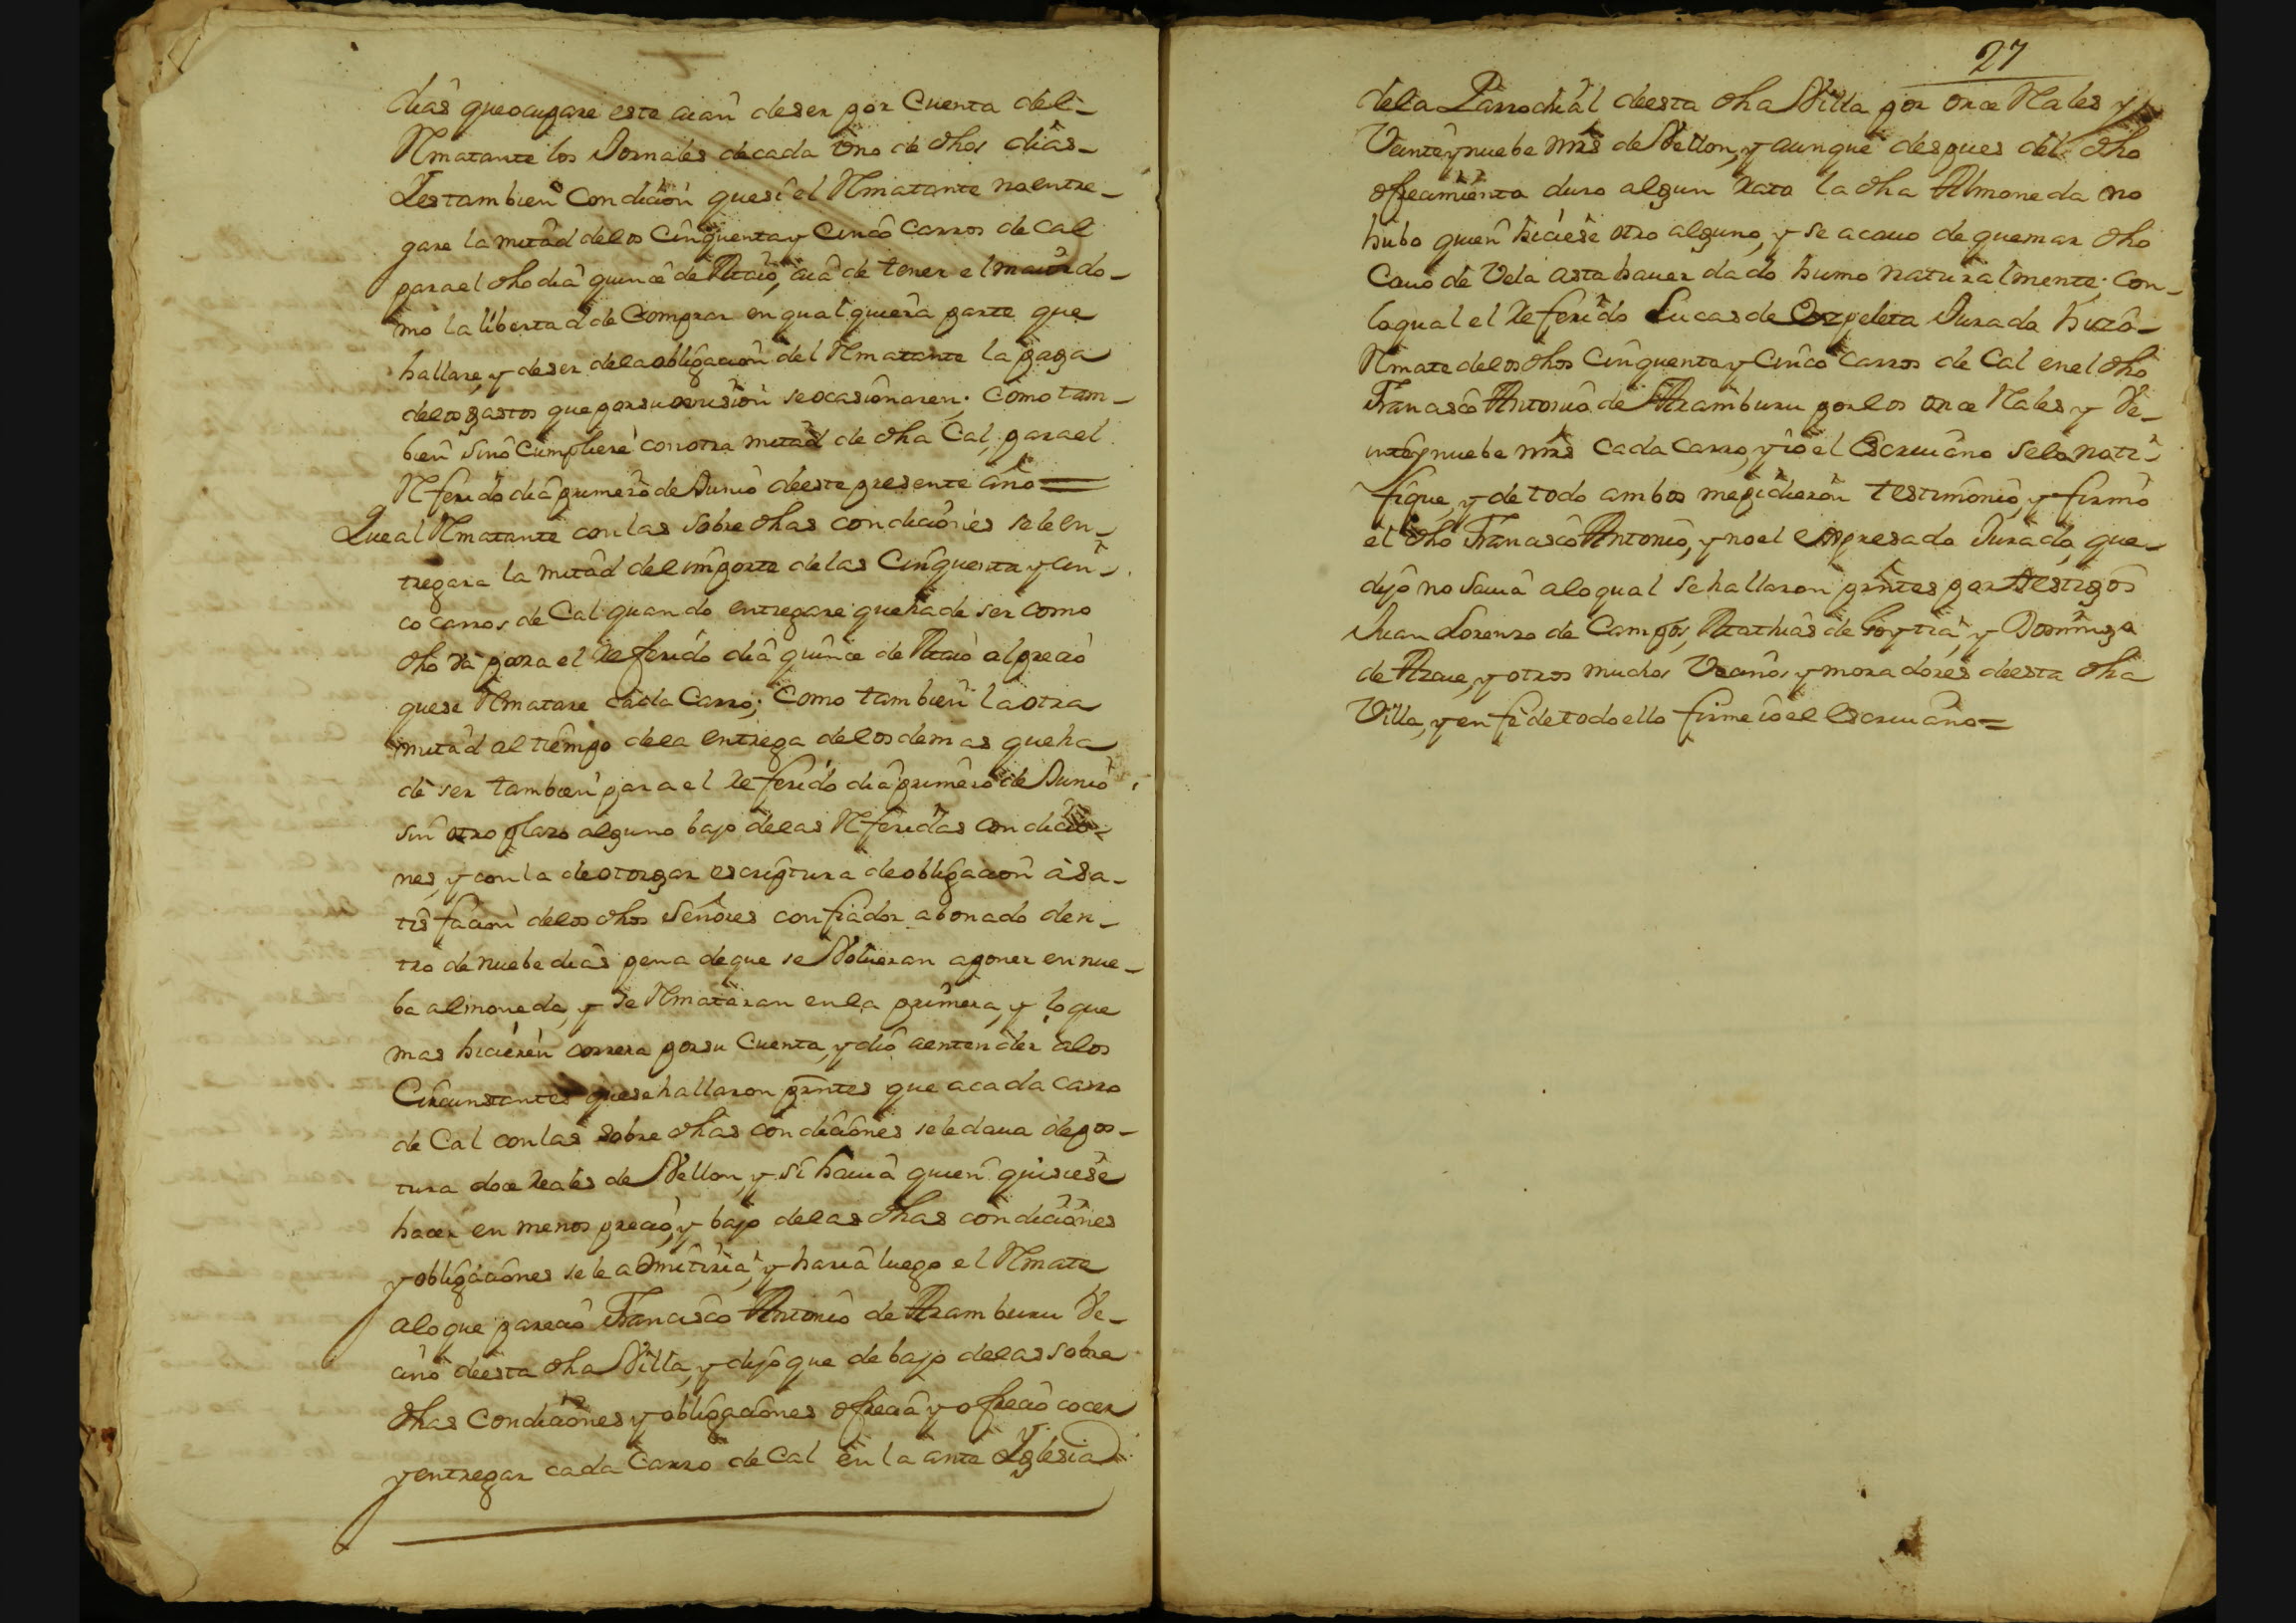 dias que ocupare este aian de ser por Cuenta del
Rmatante los Jornales de cada Vno de dhos dias
Y es tambien Condicion que si el Rmatante no entre-
gare la mitad delos Cinquenta y Cinco carros de Cal
para el dho dia quince de Maio, aia de tener el maiordo-
mo la libertad de Comprar en qual quiera parte que
hallare, y de ser dela obligacion del Rmatante la paga
delos gastos que por su omision se ocasionaren; como tam-
bien sino Cumpliere con otra mitad de dha Cal, para el
Rferido dia primero de Junio deeste presente año=
Que al Rmatante con las sobre dhas condiciones se le en-
tregara la mitad del importe delas Cinquenta y cin-
co carros de Cal quando entregare que ha de ser como
dho va para el referido dia quince de Maio al precio
que se Rmatare cada Carro; como tambien la otra
mitad al tiempo dela entrega delos demas que ha
de ser tambien para el referido dia primero de Junio
sin otro plazo alguno bajo delas Rferidas condicio-
nes, y con la de otorgar escriptura de obligacion a sa-
tisfacion delos dhos Señores con fiador abonado den-
tro de nuebe dias pena de que se Volueran a poner en nue-
ba almoneda, y se Rmataran en la primera, y lo que
mas hicieren correra por su Cuenta, y dio a entender alos
Circunstantes que se hallaron prntes que a cada carro
de Cal con las sobre dhas condiciones se le daua de pos-
tura doce reales de Vellon, y si hauia quien quisiese
hacer en menos precio, y bajo delas dhas condiciones
y obligaciones se le admitiria, y haria luego el Rmate
alo que parecio Francisco Antonio de Aramburu Ve-
cino deesta dha Villa, y dijo que debajo delas sobre
dhas Condiciones y obligaciones ofrecia y ofrecio cocer
y entregar cada Carro de Cal en la ante Yglesia
27
dela Parrochial deesta dha Villa por once Rales y
Veinte y nuebe mrs de Vellon, y aunque despues del dho
ofrecimiento duro algun rato la dha Almoneda no
hubo quien hiciese otro alguno, y se acauo de quemar dho
Cauo de Vela asta hauer dado humo naturalmente; con
lo qual el referido Lucas de Ezpeleta Jurado hizo
Rmate delos dhos Cinquenta y Cinco carros de Cal en el dho
Francisco Antonio de Aramburu por los once Rales y Ve-
inte y nuebe mrs cada carro, y io el Escriuano se lo noti-
fique, y de todo ambos me pidieron testimonio, y firmo
el dho Francisco Antonio, y no el expresado Jurado, que
dijo no sauia alo qual se hallaron prntes por testigos
Juan Lorenzo de Campos, Mathias de Goytia, y Domingo
de Arzue, y otros muchos Vecinos y moradores deesta dha
Villa, y en fe de todo ello firme io el Escriuano=